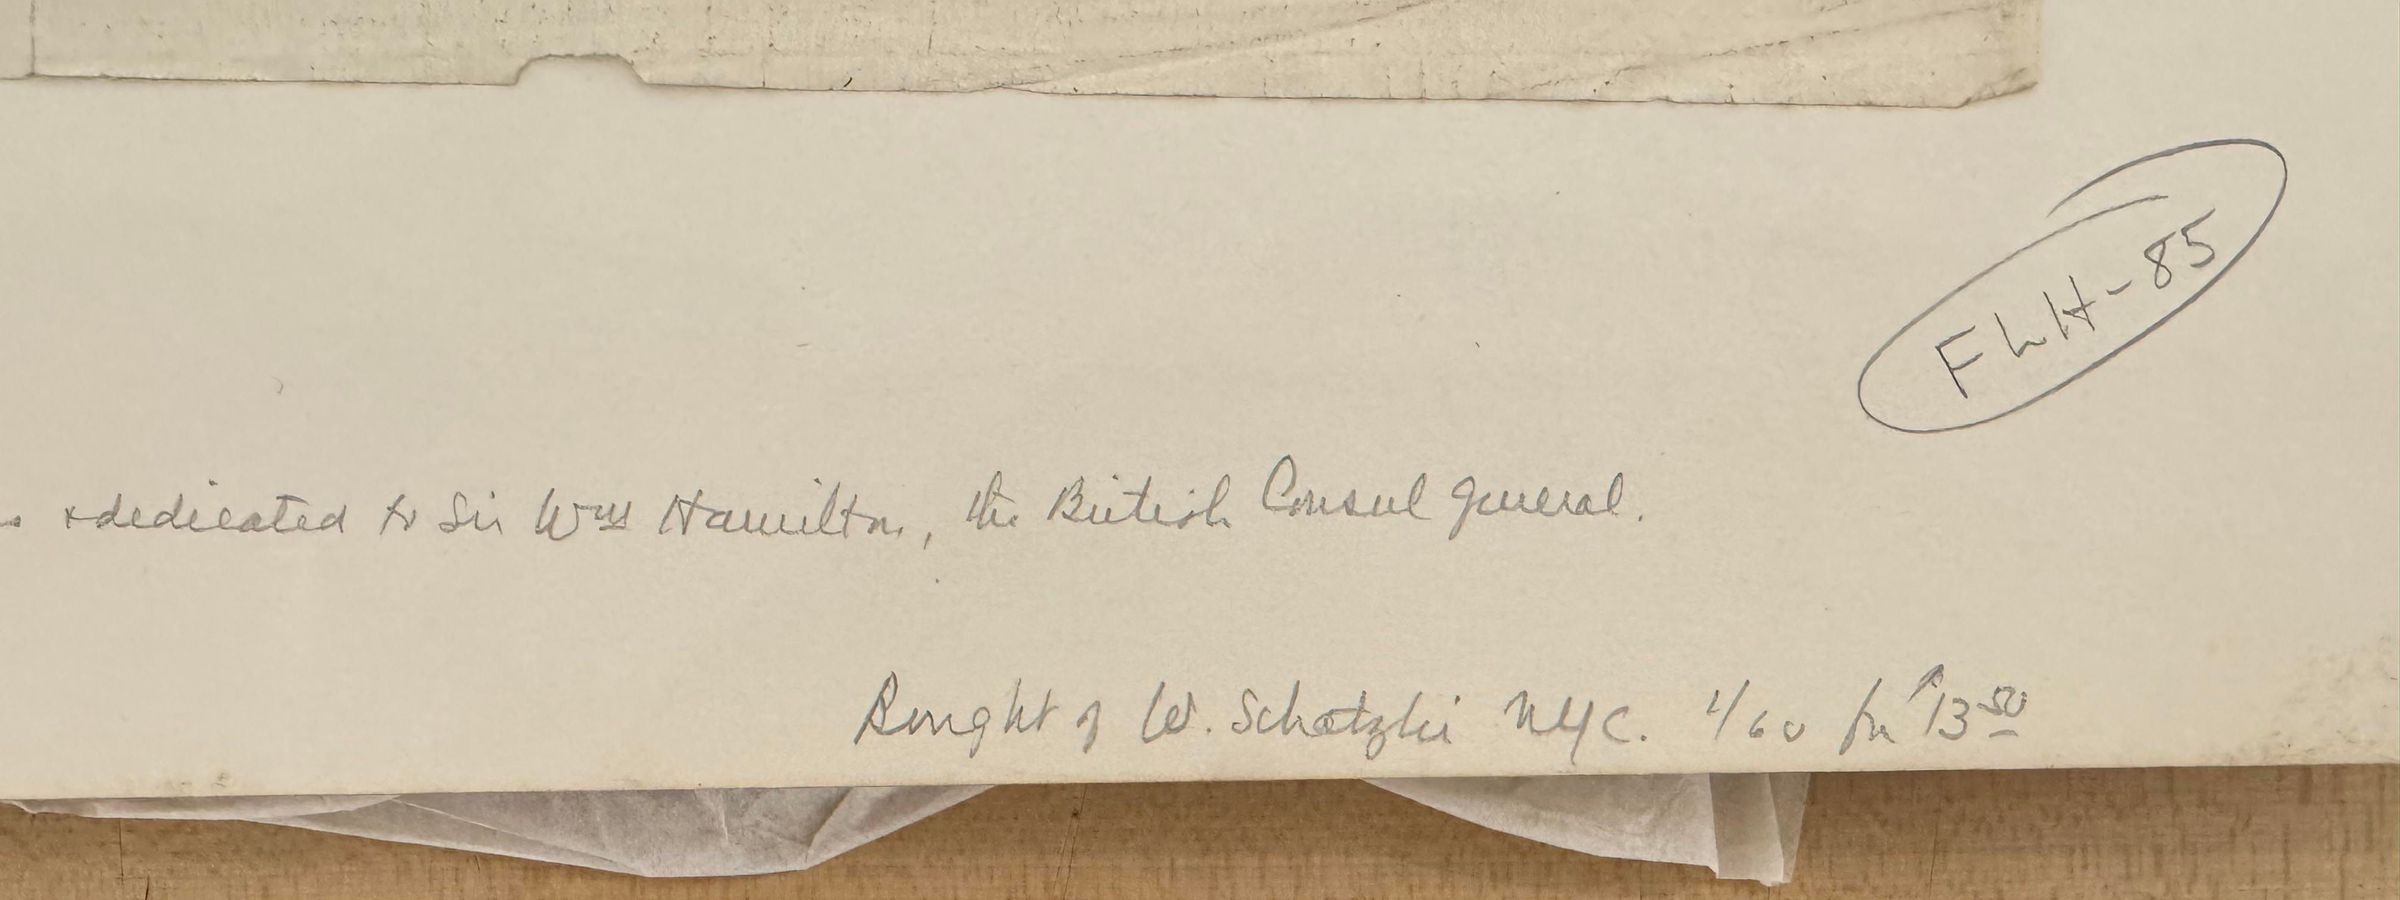 FLH-85
& dedicated to Sir Wm Hamilton, the British Consul General.
Bought of W. Schatzki NYC. 1/60 for $13.50